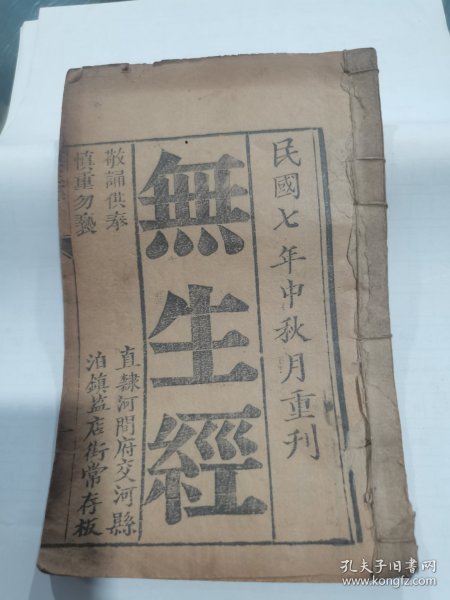 民國七年中秋月重刊
無生經
敬誦供奉
慎重勿褻
直隸河間府交河縣
泊鎮盐店街常存板
孔夫子旧书网
www.kongfz.com